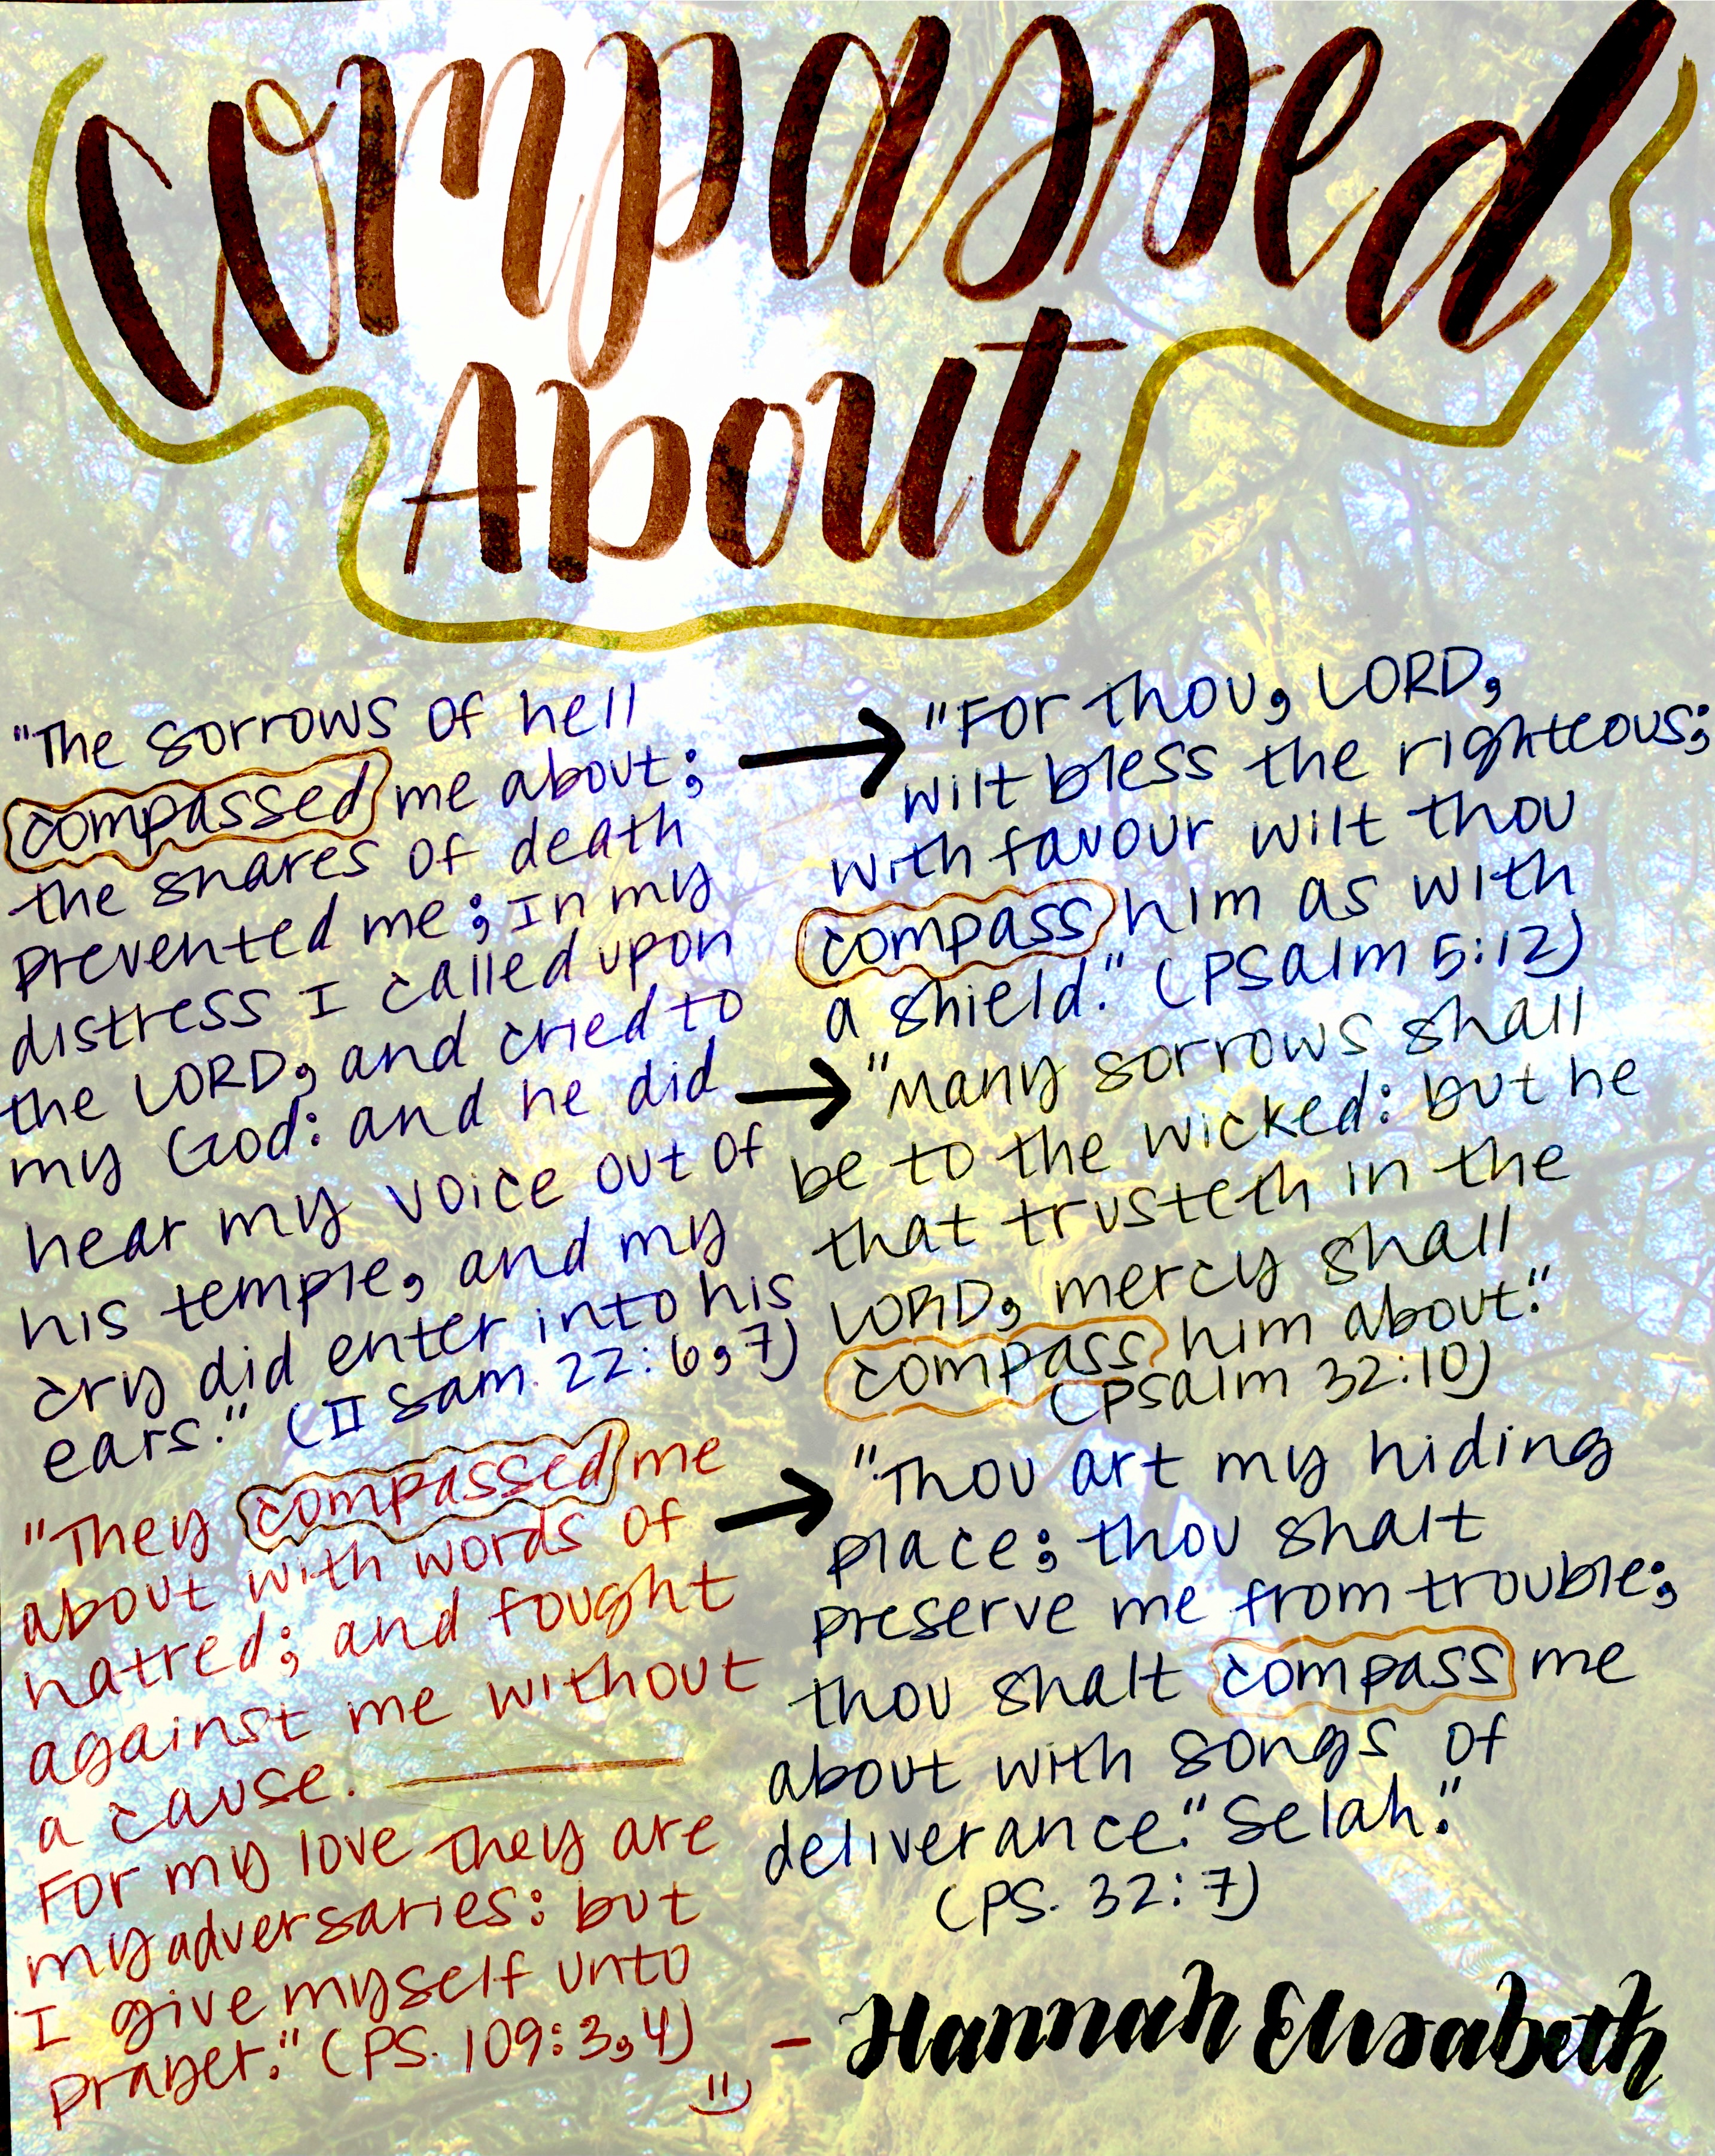 Compassed
About
"The sorrows of hell
compassed me about;
the snares of death
prevented me; In my
distress I called upon
the LORD, and cried to
my God: and he did
hear my voice out of
his temple, and my
cry did enter into his
ears." (II Sam. 22:6,7)
"They compassed me
about with words of
hatred; and fought
against me without
a cause.
For my love they are
my adversaries: but
I give myself unto
prayer." (PS. 109:3,4)
"For thou, LORD,
wilt bless the righteous;
with favour wilt thou
compass him as with
a shield." (Psalm 5:12)
"Many sorrows shall
be to the wicked: but he
that trusteth in the
LORD, mercy shall
compass him about."
(Psalm 32:10)
"Thou art my hiding
place; thou shalt
preserve me from trouble;
thou shalt compass me
about with songs of
deliverance." Selah."
(PS. 32:7)
- Hannah Elisabeth